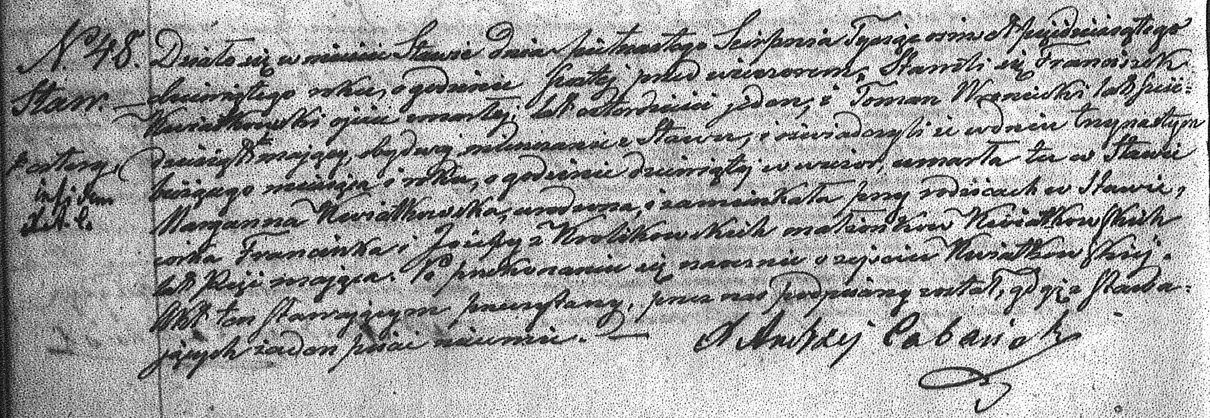 No 48. Działo się w mieście Stawie dnia piętnastego Sierpnia Tysiąc ośmset pięćdziesiątego
Staw. dziewiątego roku, o godzinie szóstej przed wieczorem, Stawili się Franciszek
Kwiatkowski ojciec zmarłej, lat czterdzieści jeden, i Toman lat pięć=
dziesiąt mający, obydwaj mieszczanie z Stawu, i oświadczyli iż w dniu trzynastym
bieżącego miesiąca i roku, o godzinie dziewiątej w wieczór, umarła tu w Stawie
Maryanna Kwiatkowska, urodzona, i zamieszkała przy rodzicach w Stawie,
córka Franciszka i Józefy z Królikowskich małżonków Kwiatkowskich
lat mająca. Po przekonaniu się naocznie o zejściu Kwiatkowskiej.
Akt ten stawającym przeczytany, przez nas podpisany został, gdyż z stawa=
jących żaden pisać nieumie. —
X Andrzej Cabanek